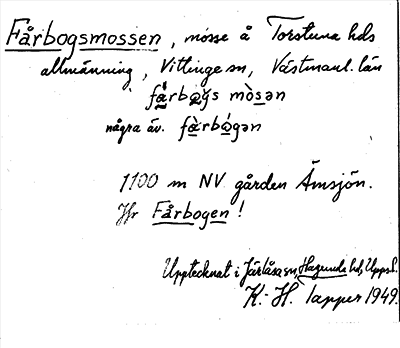 Fårbogsmossen, mosse å Torstuna hds
allmänning, Vittinge sn, Västmanl. län
få̀rbo̲gs mò̲sən
några äv. få̀rbó̲gən
1100 m NV gården Ämsjön.
Jfr Fårbogen!
Upptecknat i Järlåsa sn, Hagunda hd, Upps.l.
K.-H. Tapper 1949.